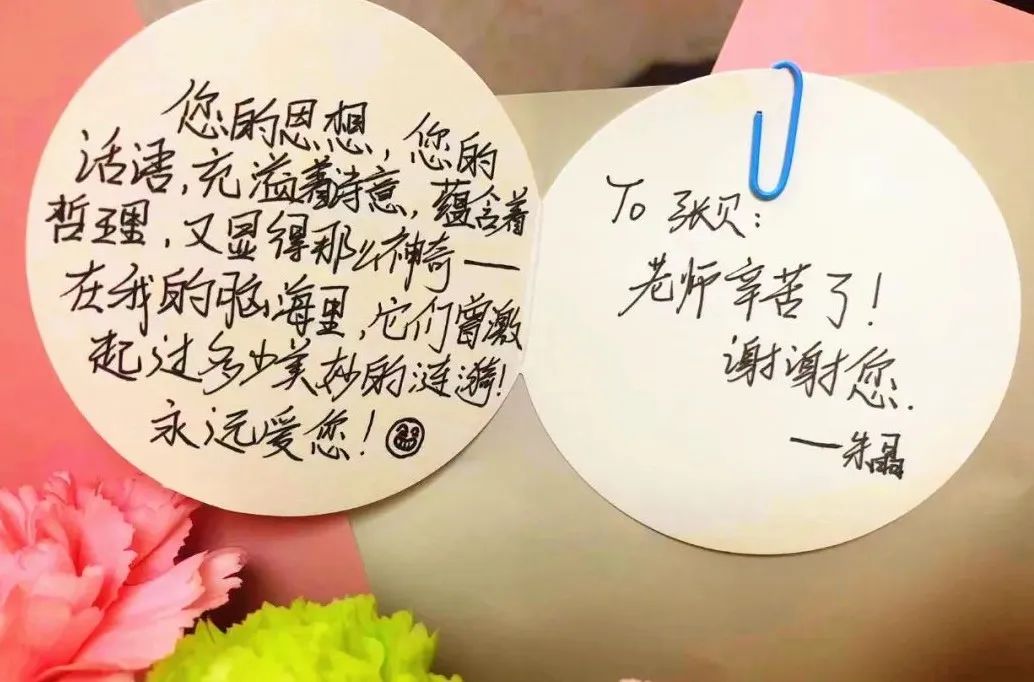 您的思想，您的
活语，充溢着诗意，蕴含着
哲理，又显得那么神奇——
在我的脑海里，它们曾激
起过多少美妙的涟漪！
永远爱您！
To 张贝：
老师辛苦了！
谢谢您.
——朱晶